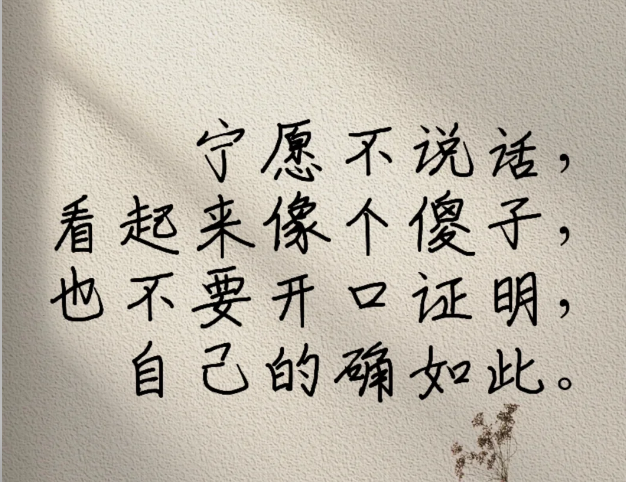 宁愿不说话，
看起来像个傻子，
也不要开口证明，
自己的确如此。